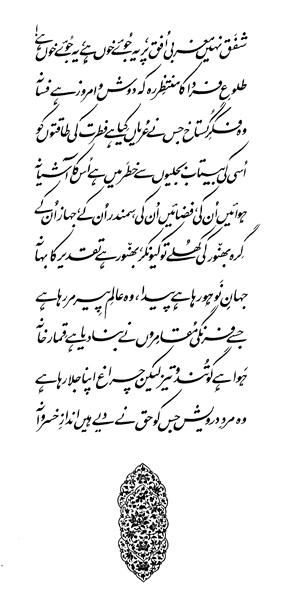 شفق نہیں مغربی افق پر یہ جوئے خوں ہے یہ جوئے خوں ہے!
طلوعِ فردا کا منتظر رہ کہ دوش و امروز ہے فسانہ
وہ فکرِ گستاخ جس نے عریاں کیا ہے فطرت کی طاقتوں کو
اسی کی بیتاب بجلیوں سے خطر میں ہے اس کا آشیانہ
ہوائیں ان کی، فضائیں ان کی، سمندر ان کے، جہاز ان کے
گرہ بھنور کی کھلے تو کیونکر، بھنور ہے تقدیر کا بہانہ
جہانِ نو ہو رہا ہے پیدا، وہ عالمِ پیر مر رہا ہے
جسے فرنگی مقامروں نے بنا دیا ہے قمار خانہ
ہوا ہے گو تند و تیز لیکن چراغ اپنا جلا رہا ہے
وہ مردِ درویش جس کو حق نے دیے ہیں اندازِ خسروانہ